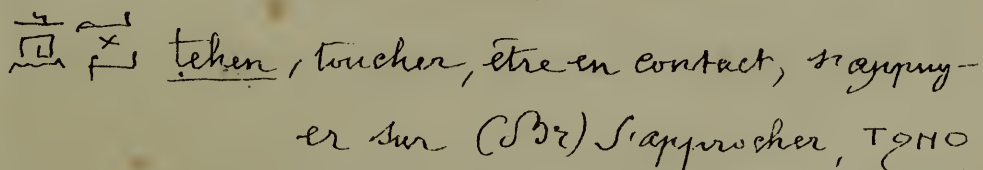 tehen, toucher, être en contact, s'appuy-
er sur (Br) s'approcher, ⲦϨⲚⲞ